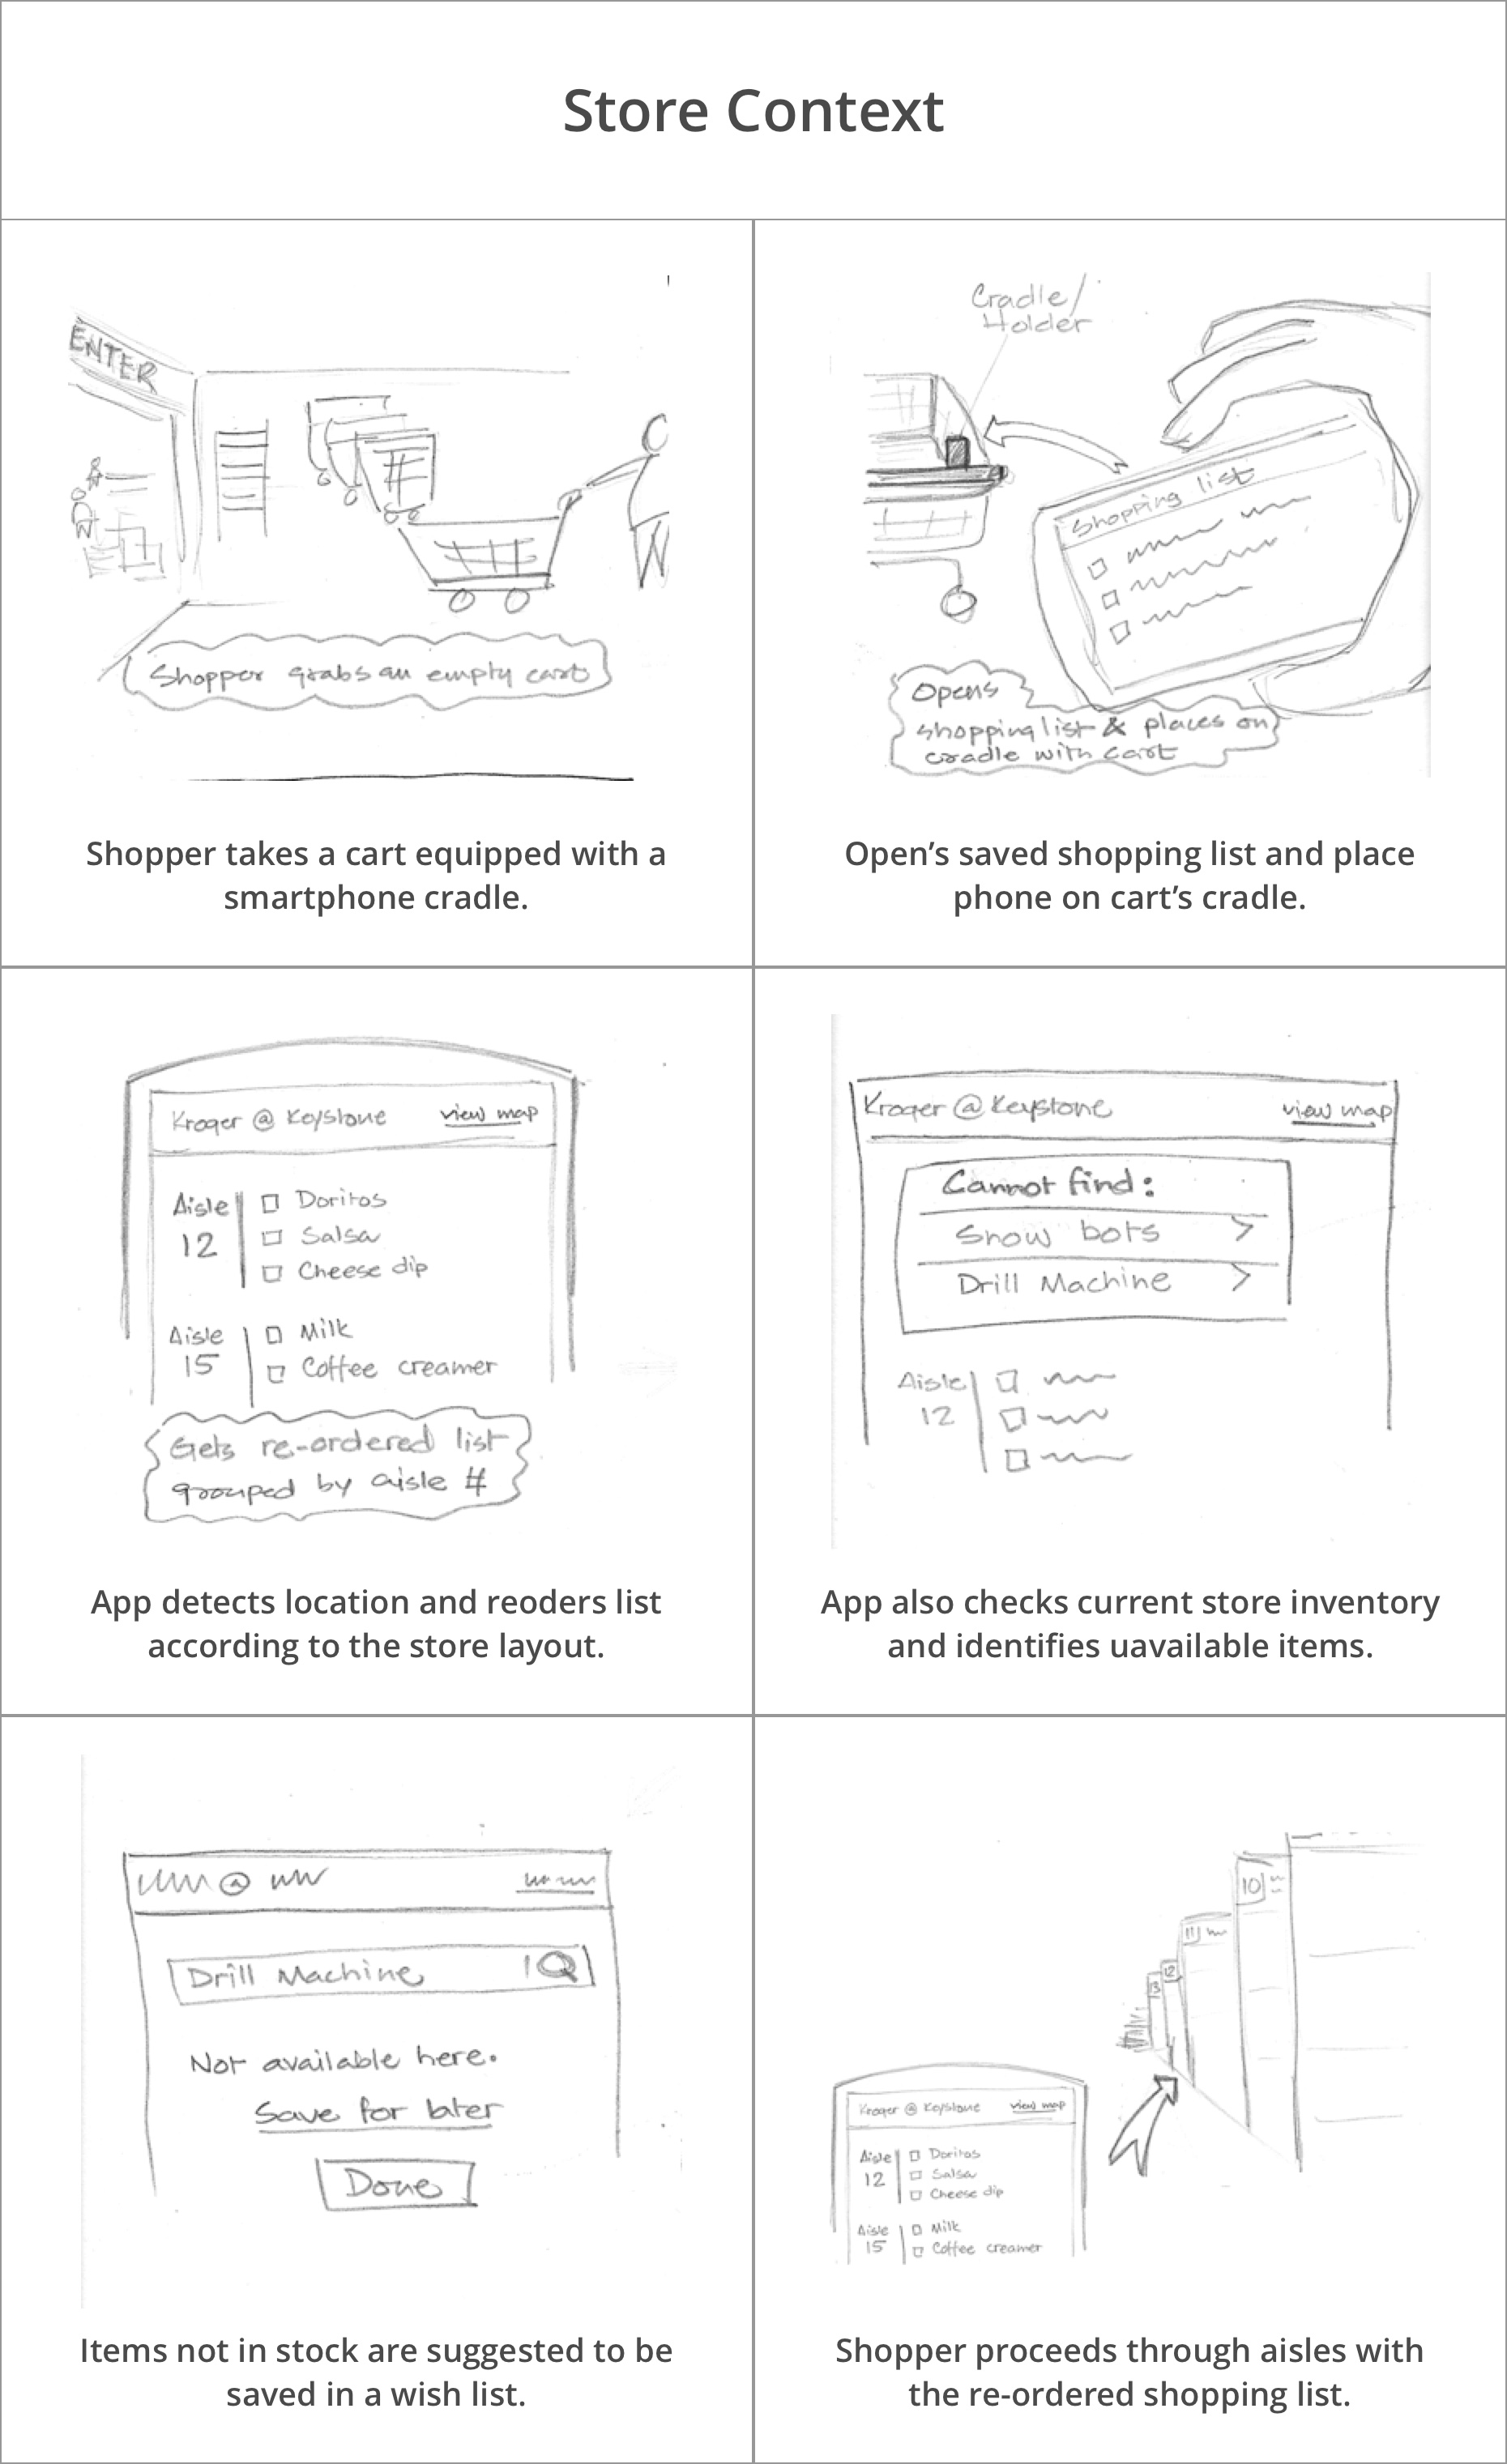 Store Context
ENTER
Shopper grabs an empty cart
Shopper takes a cart equipped with a
smartphone cradle.
Cradle/
Holder
Shopping list
Opens
shopping list & places on
cradle with cart
Open’s saved shopping list and place
phone on cart’s cradle.
Kroger @ Keystone view map
Aisle
12
Doritos
Salsa
Cheese dip
Aisle
15
Milk
Coffee creamer
Gets re-ordered list
grouped by aisle #
App detects location and reoders list
according to the store layout.
Kroger @ Keystone view map
Cannot find:
Snow bots >
Drill Machine >
Aisle
12
App also checks current store inventory
and identifies uavailable items.
@
Drill Machine
Not available here.
Save for later
Done
Items not in stock are suggested to be
saved in a wish list.
10
11
12
13
Kroger @ Keystone view map
Aisle
12
Doritos
Salsa
Cheese dip
Aisle
15
Milk
Coffee creamer
Shopper proceeds through aisles with
the re-ordered shopping list.